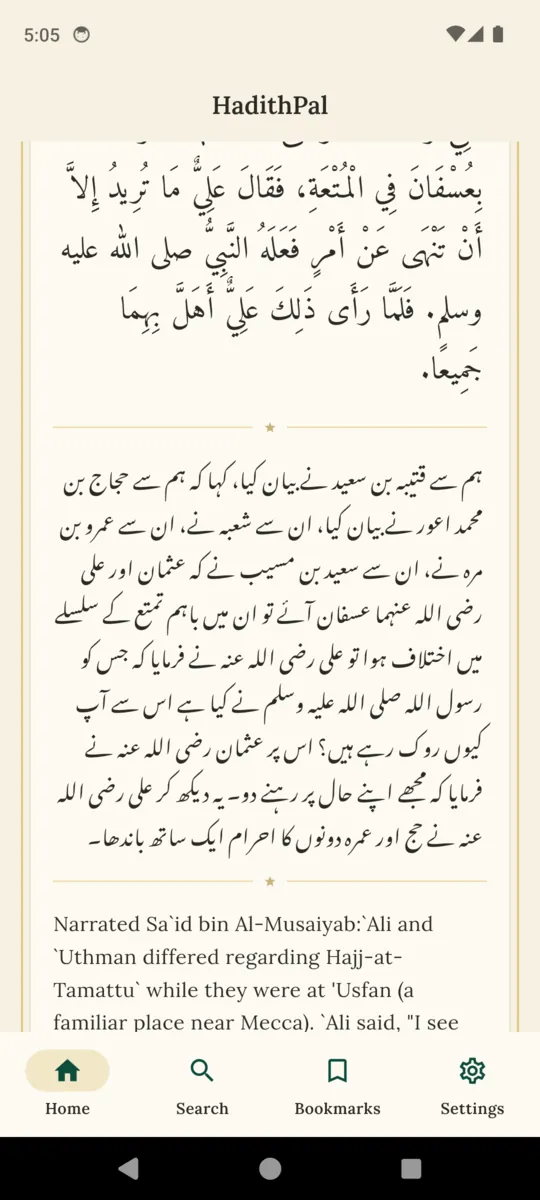 5:05
HadithPal
بِعُسْفَانَ فِي الْمُتْعَةِ، فَقَالَ عَلِيٌّ مَا تُرِيدُ إِلاَّ
أَنْ تَنْهَى عَنْ أَمْرٍ فَعَلَهُ النَّبِيُّ صلى الله عليه
وسلم‏.‏ فَلَمَّا رَأَى ذَلِكَ عَلِيٌّ أَهَلَّ بِهِمَا
جَمِيعًا‏.‏
ہم سے قتیبہ بن سعید نے بیان کیا، کہا کہ ہم سے حجاج بن
محمد اعور نے بیان کیا، ان سے شعبہ نے، ان سے عمرو بن
مرہ نے، ان سے سعید بن مسیب نے کہ عثمان اور علی
رضی اللہ عنہما عسفان آئے تو ان میں باہم تمتع کے سلسلے
میں اختلاف ہوا تو علی رضی اللہ عنہ نے فرمایا کہ جس کو
رسول اللہ صلی اللہ علیہ وسلم نے کیا ہے اس سے آپ
کیوں روک رہے ہیں؟ اس پر عثمان رضی اللہ عنہ نے
فرمایا کہ مجھے اپنے حال پر رہنے دو۔ یہ دیکھ کر علی رضی اللہ
عنہ نے حج اور عمرہ دونوں کا احرام ایک ساتھ باندھا۔
Narrated Sa`id bin Al-Musaiyab:`Ali and
`Uthman differed regarding Hajj-at-
Tamattu` while they were at 'Usfan (a
familiar place near Mecca). `Ali said, "I see
Home
Search
Bookmarks
Settings